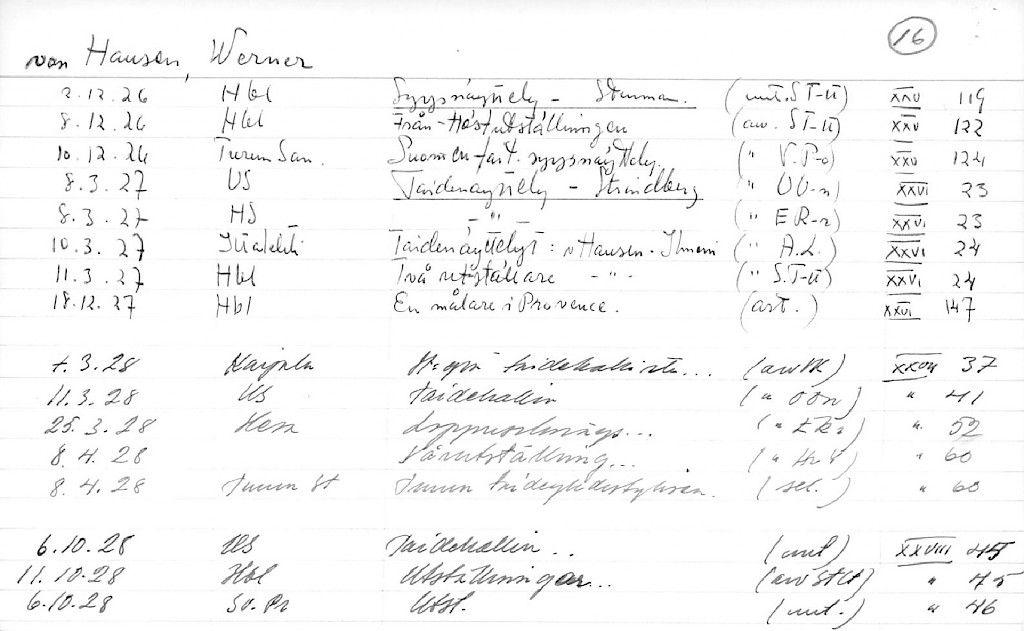 16
von Hausen, Werner
2.12.26 Hbl Syysnäyttely - (mit. ST-U) XXV 119
8.12.26 Hbl Från Höstutställningen (arv. ST-U) XXV 122
10.12.26 Turun San. Suomen tait. syysnäyttely. (" V.P-o) XXV 124
8.3.27 US Taidenäyttely - Strindberg (" OO-n) XXVI 23
8.3.27 HS - " - (" ER-r) XXVI 23
10.3.27 Iltalehti Taidenäyttelyt: v Hausen - (" A.L.) XXVI 24
11.3.27 Hbl Två utställare - " - (" S.T-U) XXVI 24
18.12.27 Hbl En målare i Provence. (art.) XXVI 147
.3.28 Karjala taidehallista... 37
11.3.28 US Taidehallin (" OON) " 41
25.3.28 (" " 52
8.4.28 Vårutställning... (" " 60
8.4.28 Turun St Turun (sel.) " 60
6.10.28 US Taidehallin.. XXVIII 45
11.10.28 Hbl Utställningar... (arv StU) " 45
6.10.28 Sv. Pr Utst. " 46